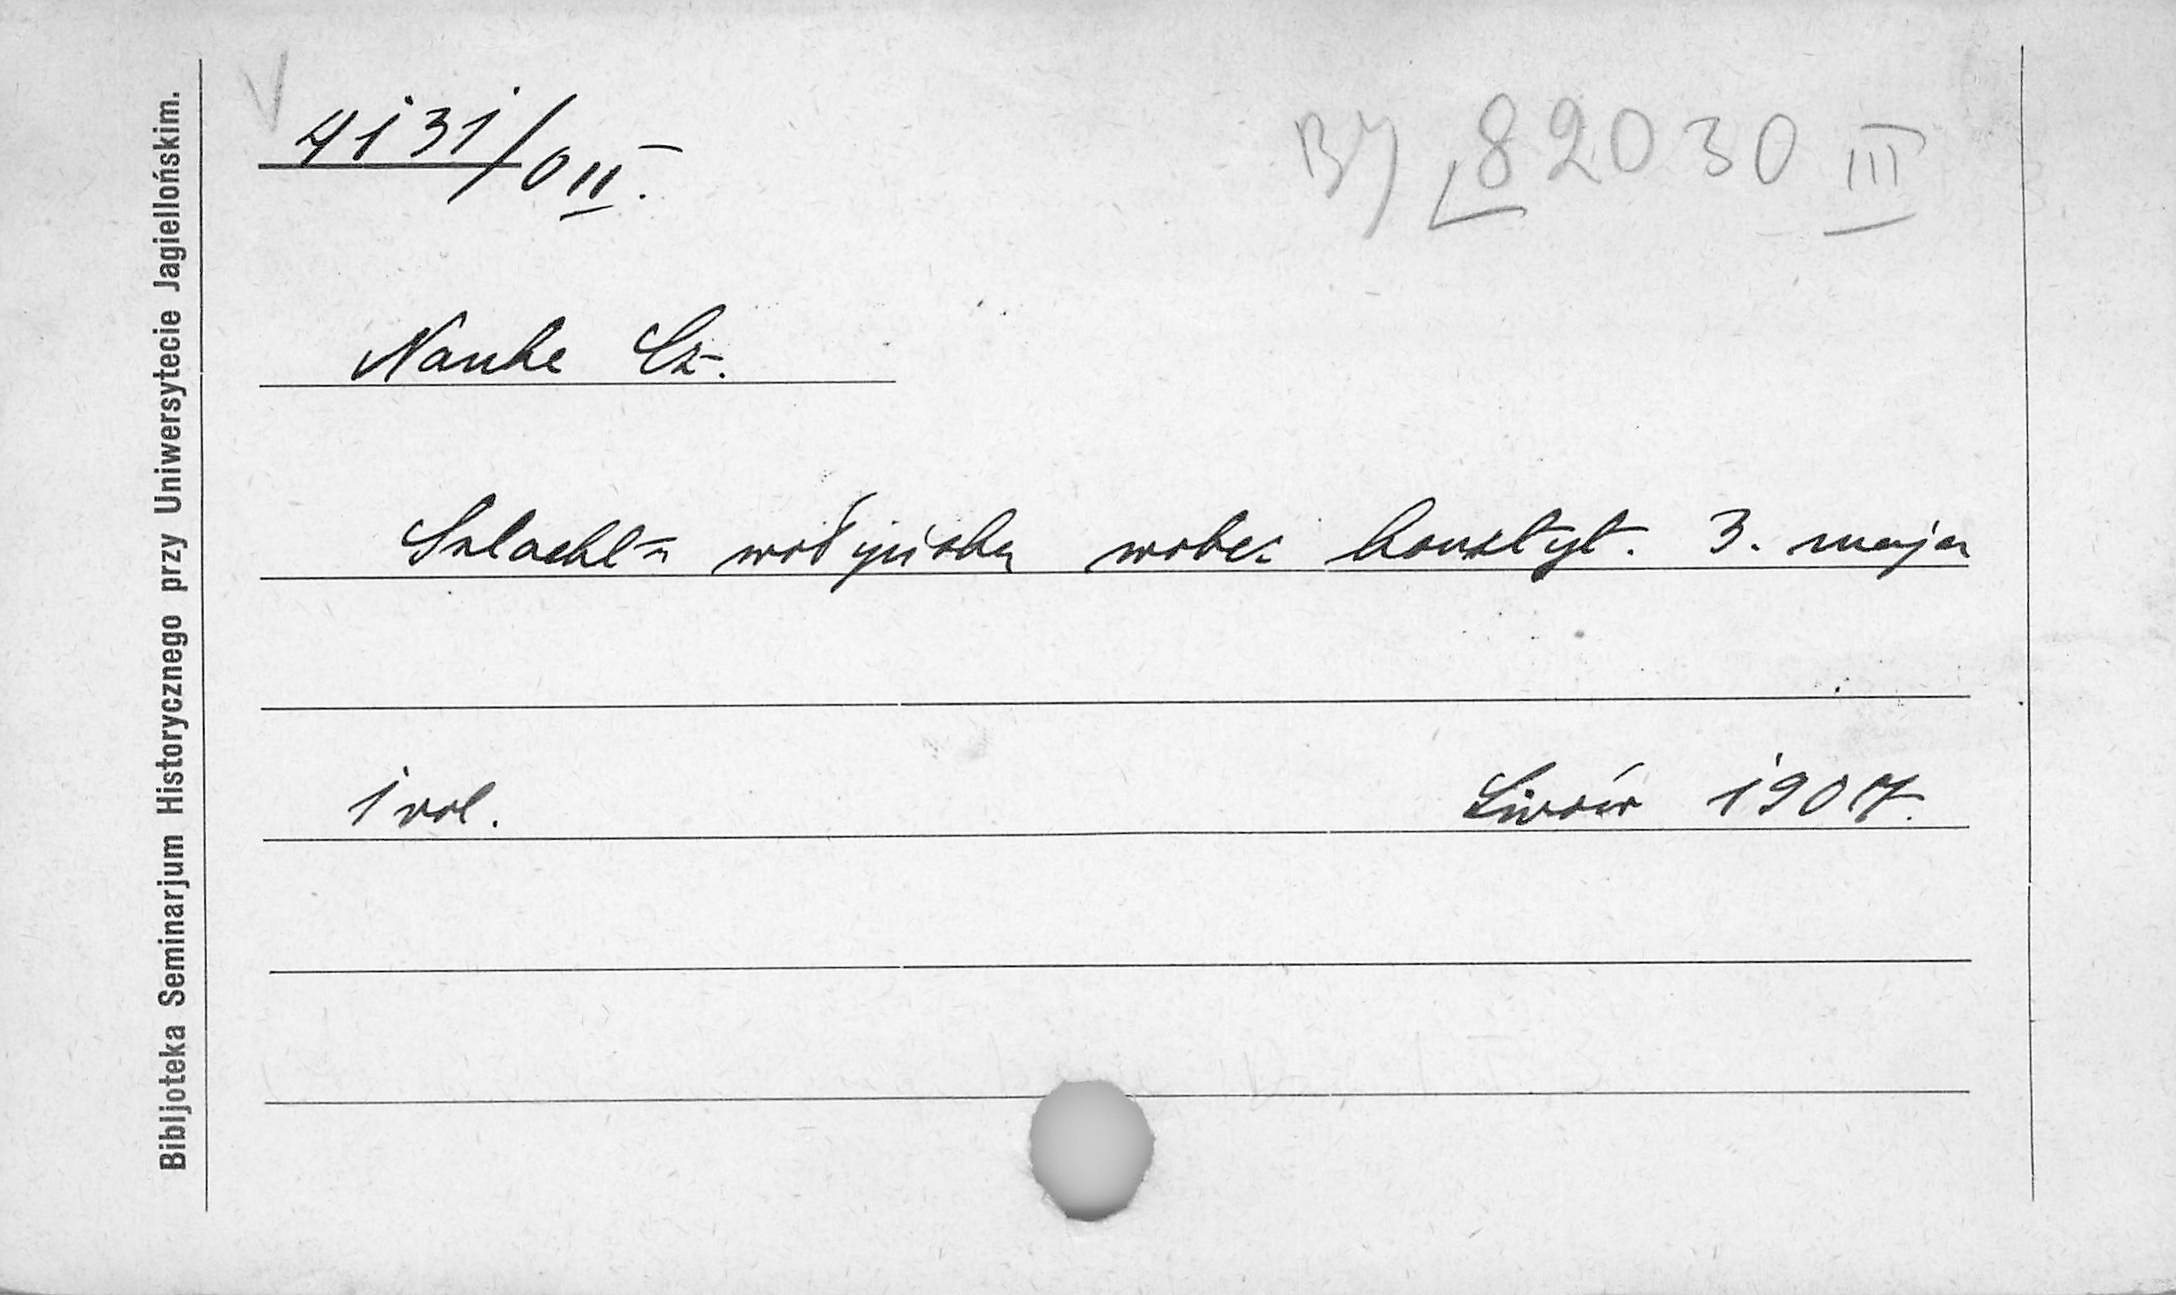 4131/0 II.
BJ 82030 III
Nanke Cz.
Szlachta wołyńska wobec konstyt. 3. maja
1 vol.
Lwów 1907.
Bibljoteka Seminarjum Historycznego przy Uniwersytecie Jagiellońskim.